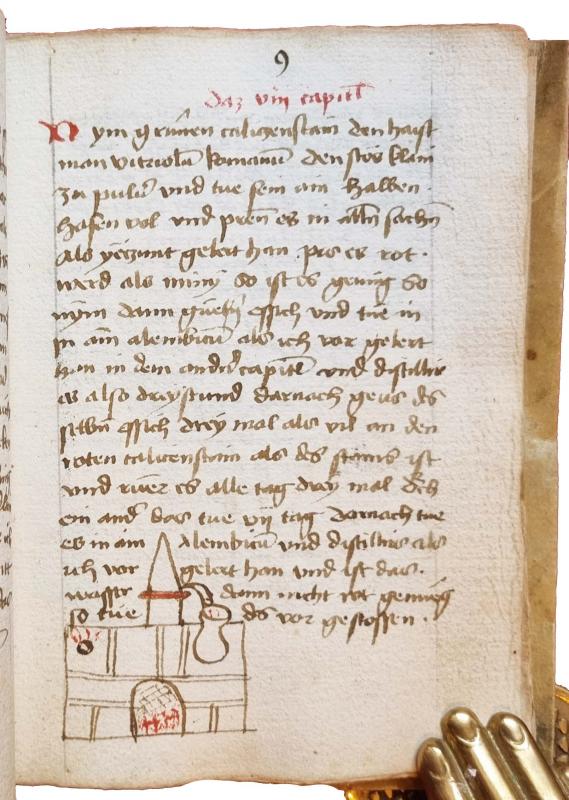 9
daz viij capitl
Nym grünen caligenstain den haist
man vitriolū Romanū den stos klain
zu puluer vnd tue sein ain halben
hafen vol vnd pren es in alln sachn
als yeczunt gelert han pis es rot
werd als miny so ist es genug so
nym dann guetn essich vnd tue in
in ain alembicū als ich vor gelert
han in dem andrn capitl vnd distillir
es also dreystund darnach geus ds
selbn essich drey mal als vil an den
roten caligenstain als ds stains ist
vnd ruer es alle tag drey mal dch
ein and das tue vij tag darnach tue
es in ain Alembicū vnd distillirs als
ich vor gelert han vnd ist das
wasser dann nicht rot genueg
so tue ds vor gestossen